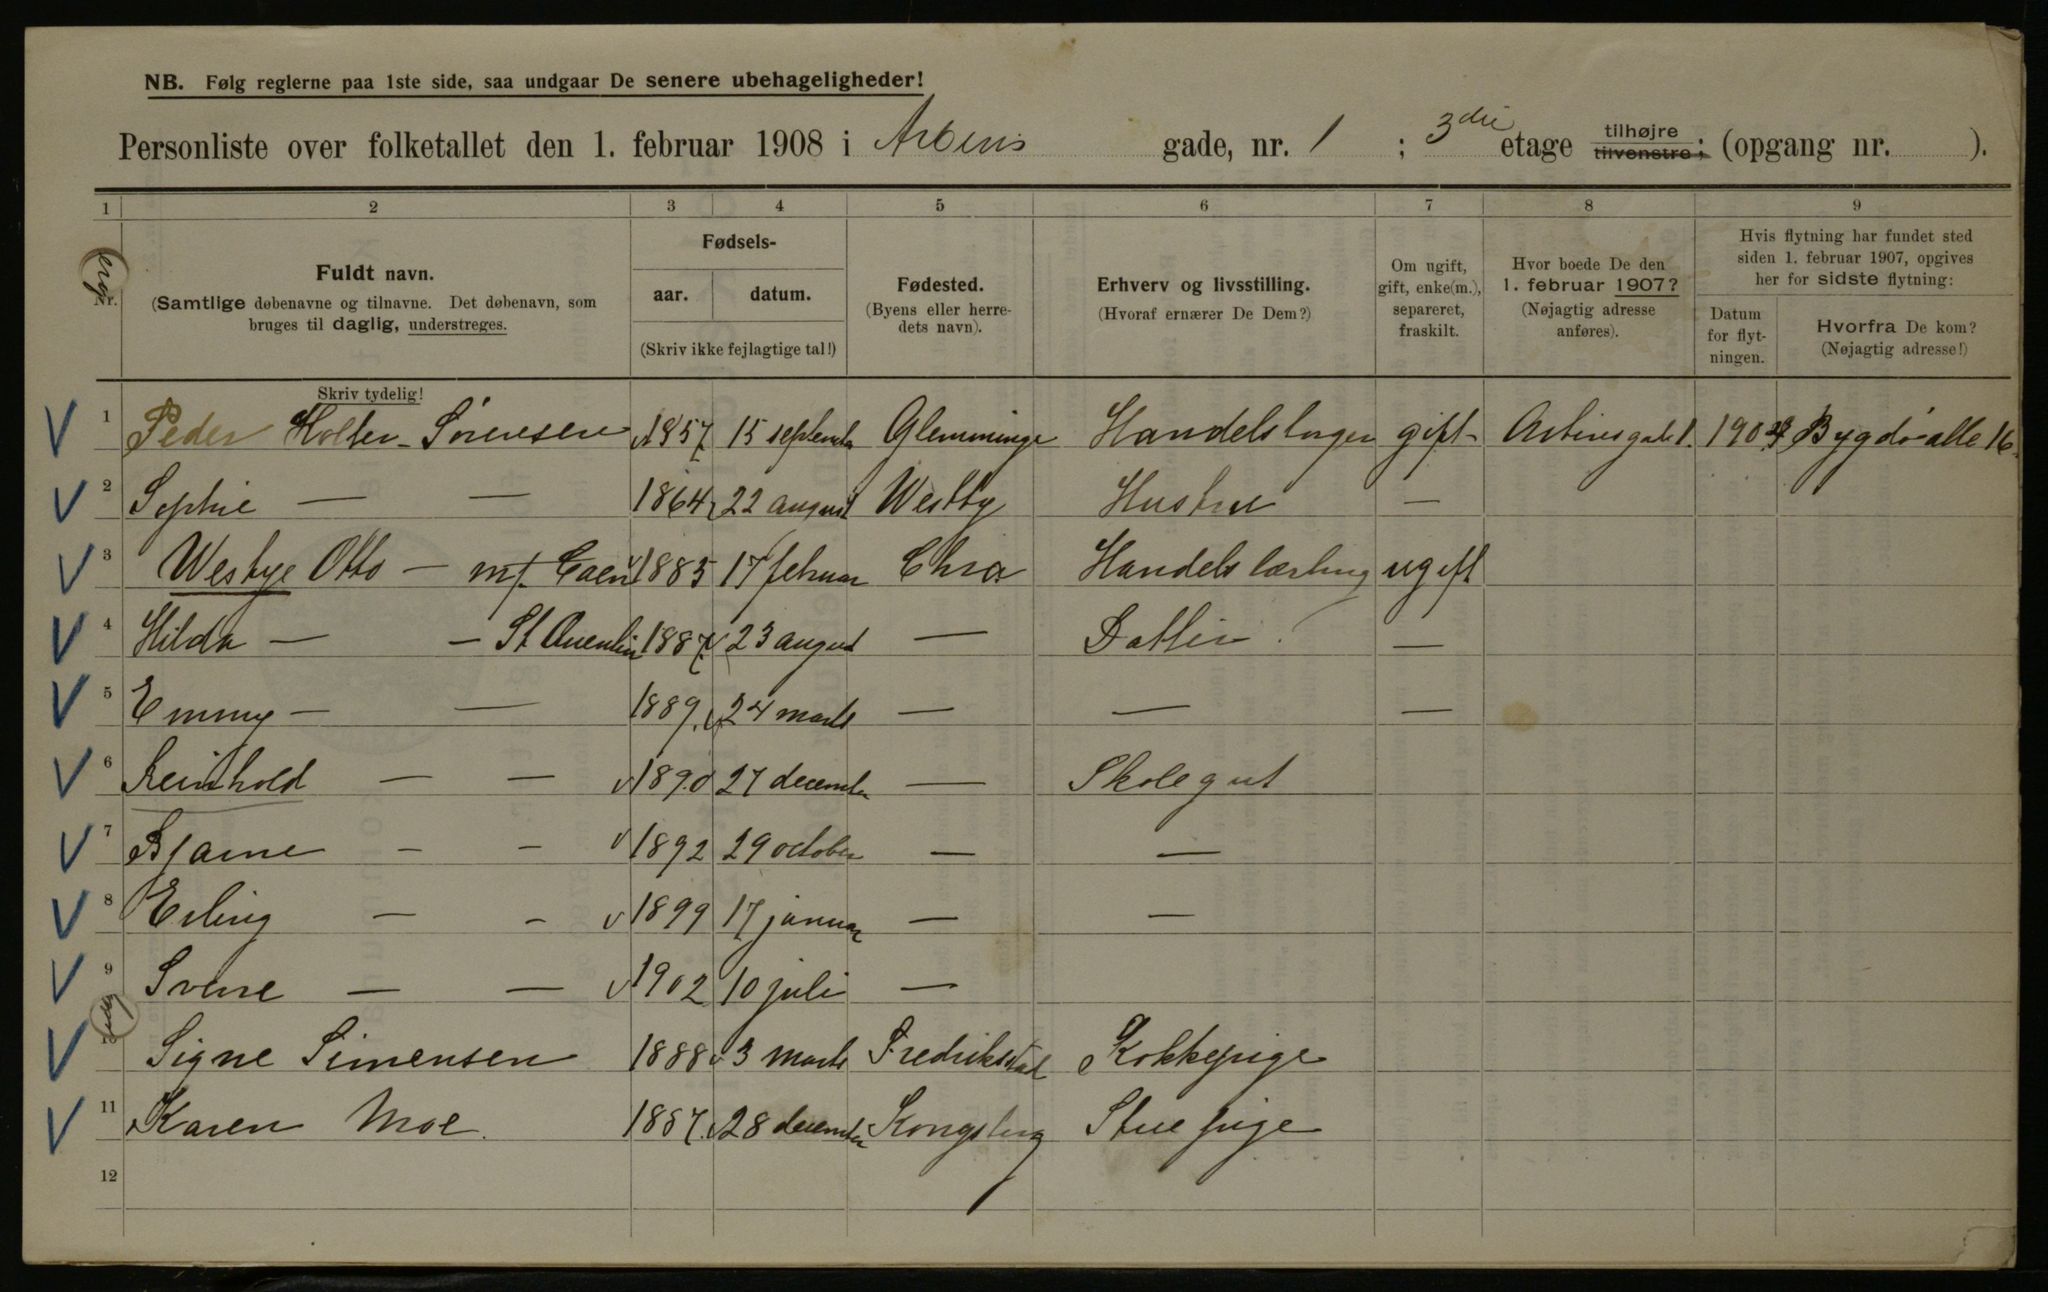 NB. Følg reglerne paa 1ste side, saa undgaar De senere ubehageligheder!
Personliste over folketallet den 1. februar 1908 i Arbins gade, nr. 1 ; 3die etage tilhøjre tilvenstre; (opgang nr. ).
1 2 3 4 5 6 7 8 9
Nr.
Fuldt navn.
(Samtlige døbenavne og tilnavne. Det døbenavn, som
bruges til daglig, understreges.
Skriv tydelig!
Fødsels-
aar. datum.
(Skriv ikke fejlagtige tal!)
Fødested.
(Byens eller herre-
dets navn).
Erhverv og livsstilling.
(Hvoraf ernærer De Dem?)
Om ugift,
gift, enke(m.),
separeret,
fraskilt.
Hvor boede De den
1. februar 1907?
(Nøjagtig adresse
anføres).
Hvis flytning har fundet sted
siden 1. februar 1907, opgives
her for sidste flytning:
Datum
for flyt-
ningen.
Hvorfra De kom?
(Nøjagtig adresse!)
1 Peder Holter-Sörensen 1857 15 september Glemminge Handelsborger gift Arbinsgade 1. Bygdö alle 16
2 Sophie — — 1864 22 august Westby Hustru —
3 Westye Otto — mf. Caen 1885 17 februar Chra Handelslærling ugift
4 Hilda — — St Quentin 1887 23 august — Datter. —
5 Emmy — — 1889. 24 marts — — —
6 Reinhold — — 1890 27 december — Skolegut
7 Bjarne — — 1892 29 october — —
8 Erling — — 1899 17 januar — —
9 Sverre — — 1902 10 juli —
10 Signe Simensen 1888 3 marts Fredrikstad Kokkepige
11 Karen Moe. 1887. 28 december Kongsberg Stuepige
12